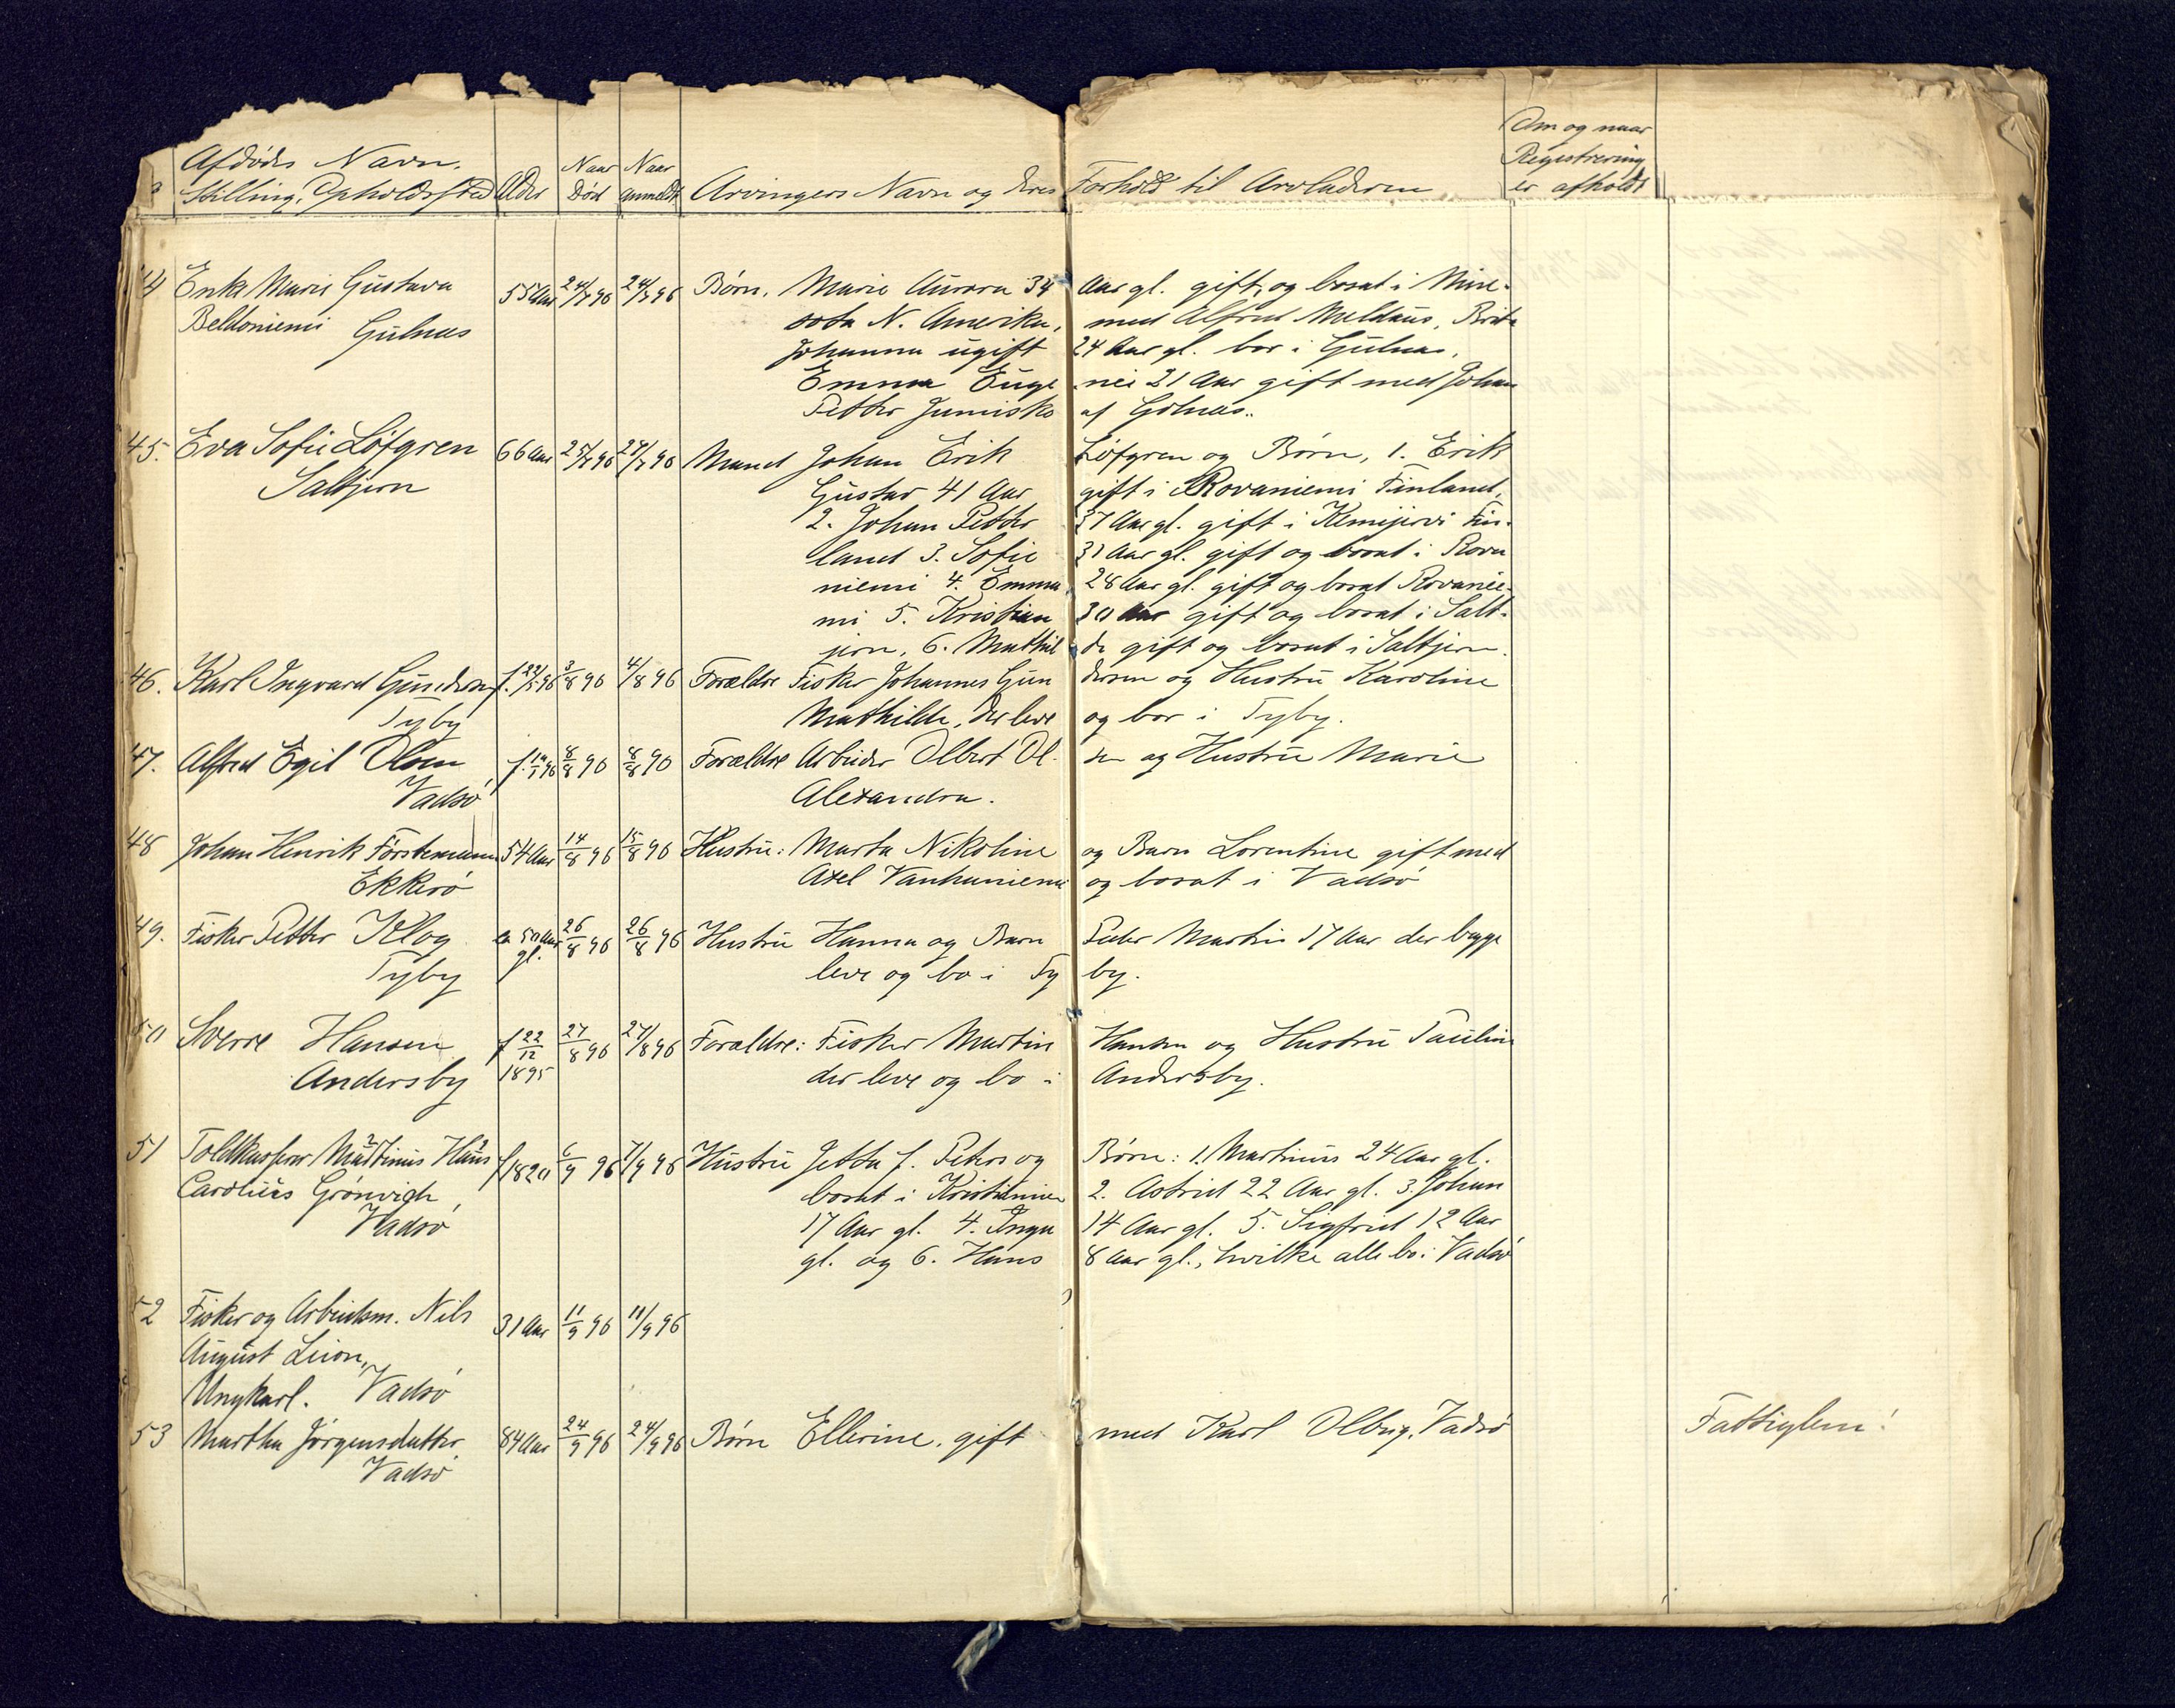 Om og naar
Afdødes Navn. Naar Naar Registrering
Stilling, Opholdssted Alder Død anmeldt Arvingers Navn og deres Forhold til Arveladeren er afholdt
44 Enke Marie Gustava 55 Aar 24/7 96 24/7 96 Børn. Marie Aurora 34 Aar gl. gift, og bosat i Mine-
Beldoniemi sota N. Amerika, med Alfred Meldaus, Brita
Gulnæs Johanna ugift 24 Aar gl. bor i Gulnæs,
Emma Euge nie 21 Aar gift med Johan
Petter Jumisko af Golnæs.
45. Eva Sofie Löfgren 66 Aar 25/7 96 27/7 96 Mand Johan Erik Löfgren og Børn, 1. Erik
Saltjern Gustav 41 Aar gift i Rovaniemi Finland,
2. Johan Petter 37 Aar gl. gift i Kemijervi Fin-
land 3. Sofie 31 Aar gl. gift og bosat i Rova
niemi 4. Emma 28 Aar gl. gift og bosat Rovanie-
mi 5. Kristian 30 Aar gift og bosat i Salt-
jern, 6. Mathil de gift og bosat i Saltjern.
46. Karl Ingvard Gundersen f. 22/5 96 3/8 96 4/8 96 Forældre Fisker Johannes Gun dersen og Hustru Karoline
Tyby Mathilde, der leve og bor i Tyby.
47. Alfred Egil Olsen f. 96 8/8 96 8/8 96 Forældre Arbeider Olbert Ol- sen og Hustru Marie
Vadsø Alexandra.
48 Johan Henrik Förstemann 54 Aar 14/8 96 15/8 96 Hustru: Marta Nikoline og Barn Lorentine gift med
Ekkerø Axel Vanhuniemi og bosat i Vadsø
49. Fisker Petter Klog ca 50 Aar 26/8 96 26/8 96 Hustru Hanna og Barn Peder Martin 17 Aar der begge
Tyby gl. leve og bo i Ty by.
50 Sverre Hansen f 22/12 27/8 96 27/8 96 Forældre: Fisker Martin Hansen og Hustru Pauline
Andersby 1895 der leve og bo i Andersby.
51 Toldkasserer Martinus Hans f 1820 6/9 96 7/9 96 Hustru Jetta f. Peters og Børn: 1. Martinus 24 Aar gl.
Carolius Grönvigh bosat i Kristiania 2. Astrid 22 Aar gl. 3. Johan
Vadsø 17 Aar gl. 4. Inga 14 Aar gl. 5. Sigfrid 12 Aar
gl. og 6. Hans 8 Aar gl., hvilke alle bo i Vadsø
52 Fisker og Arbeidsm. Nils 31 Aar 11/9 96 11/9 96
August Leion,
Ungkarl. Vadsø
53 Martha Jörgensdatter 84 Aar 24/9 96 24/9 96 Børn Ellerine, gift med Karl Olbrig, Vadsø Fattiglem!
Vadsø